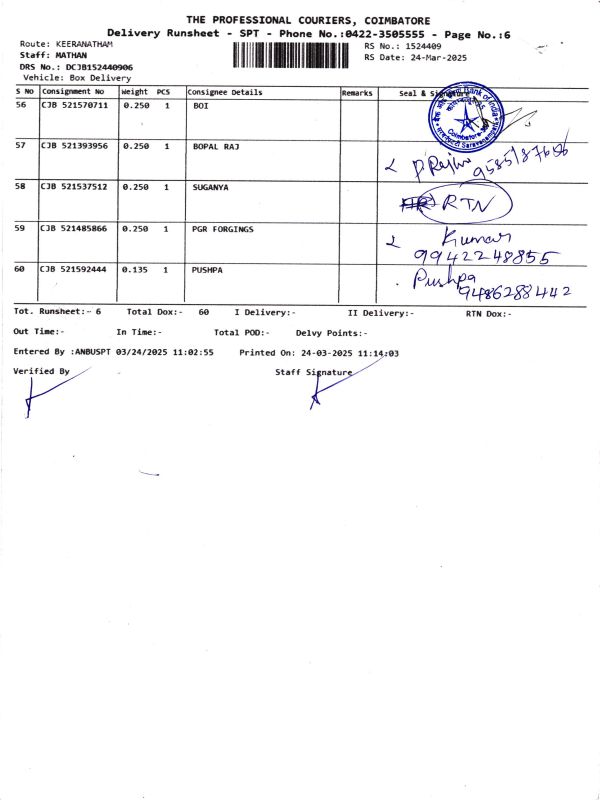 THE PROFESSIONAL COURIERS, COIMBATORE
Delivery Runsheet - SPT - Phone No.:0422-3505555 - Page No.:6
Route: KEERANATHAM RS No.: 1524409
Staff: MATHAN RS Date: 24-Mar-2025
DRS No.: DCJB152440906
Vehicle: Box Delivery
S NO Consignment No Weight PCS Consignee Details Remarks Seal & Signature
56 CJB 521570711 0.250 1 BOI
Bank of India
Coimbatore
57 CJB 521393956 0.250 1 BOPAL RAJ
P Rajhu 9585187656
58 CJB 521537512 0.250 1 SUGANYA
RTN
59 CJB 521485866 0.250 1 PGR FORGINGS
Kumar
9942248855
60 CJB 521592444 0.135 1 PUSHPA
Pushpa
9486288442
Tot. Runsheet:- 6 Total Dox:- 60 I Delivery:- II Delivery:- RTN Dox:-
Out Time:- In Time:- Total POD:- Delvy Points:-
Entered By :ANBUSPT 03/24/2025 11:02:55 Printed On: 24-03-2025 11:14:03
Verified By Staff Signature